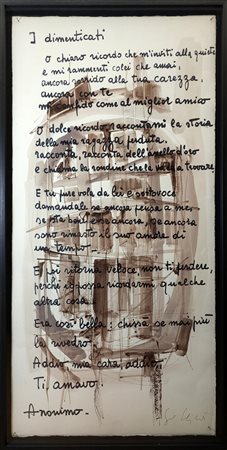 I dimenticati
O chiaro ricordo che m'inviti alla quiete
e mi rammenti colei che amai,
ancora sorrido alla tua carezza,
ancora con te
mi confido come al miglior amico
O dolce ricordo, raccontami la storia
della mia ragazza perduta,
racconta, racconta dell'anello d'oro
e chiama la rondine che la vada a trovare
E tu pure vola da lei e sottovoce
domandale se ancora pensa a me,
se sta bene ancora, se ancora
sono rimasto il suo amore di
un tempo.
E poi ritorna veloce, non ti perdere,
perché io possa ricordarmi qualche
altra cosa.
Era così bella; chissà se mai più
la rivedrò.
Addio, mia cara, addio.
Ti amavo.
Anonimo.